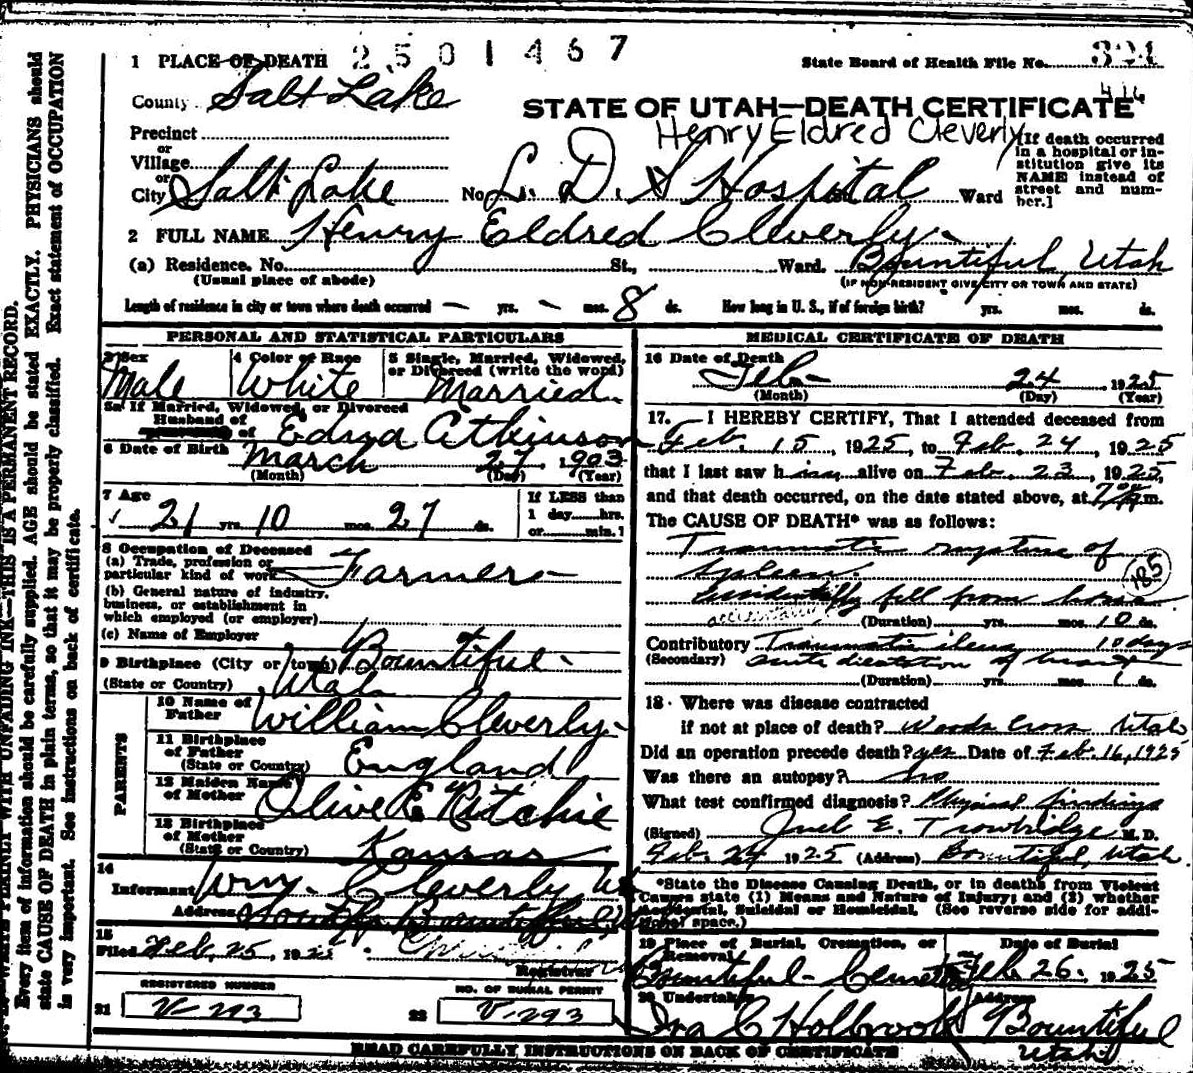 1 PLACE OF DEATH 2501467
State Board of Health File No. 324
County Salt Lake
416
STATE OF UTAH—DEATH CERTIFICATE
Henry Eldred Cleverly
Precinct
or
Village
or
City Salt Lake No. L. D. S Hospital Ward
[If death occurred
in a hospital or in-
stitution give its
NAME instead of
street and num-
ber.]
2 FULL NAME Henry Eldred Cleverly
(a) Residence. No. St., Ward. Bountiful, Utah
(Usual place of abode) (IF NON-RESIDENT GIVE CITY OR TOWN AND STATE)
Length of residence in city or town where death occurred — yrs. — mos. 8 ds. How long in U. S., if of foreign birth? yrs. mos. ds.
PERSONAL AND STATISTICAL PARTICULARS
3 Sex 4 Color or Race 5 Single, Married, Widowed,
or Divorced (write the word)
Male White Married
5a If Married, Widowed, or Divorced
Husband of
of Edna Atkinson
6 Date of Birth March 27 1903
(Month) (Day) (Year)
7 Age
21 yrs. 10 mos. 27 ds.
If LESS than
1 day hrs.
or min.?
8 Occupation of Deceased
(a) Trade, profession or
particular kind of work Farmer
(b) General nature of industry,
business, or establishment in
which employed (or employer)
(c) Name of Employer
9 Birthplace (City or town) Bountiful
(State or Country) Utah
PARENTS
10 Name of
Father William Cleverly
11 Birthplace
of Father
(State or Country) England
12 Maiden Name
of Mother Olive E Ritchie
13 Birthplace
of Mother
(State or Country) Kansas
14
Informant Wm. Cleverly
Address South Bountiful
15
Filed Feb, 25, 1925
Registrar
REGISTERED NUMBER NO. OF BURIAL PERMIT
21 V-293 22 V-293
MEDICAL CERTIFICATE OF DEATH
16 Date of Death
Feb- 24 1925
(Month) (Day) (Year)
17. I HEREBY CERTIFY, That I attended deceased from
Feb. 15, 1925, to Feb. 24, 1925
that I last saw him alive on Feb. 23, 1925,
and that death occurred, on the date stated above, at m.
The CAUSE OF DEATH* was as follows:
Traumatic rupture of
spleen.
185
Accidentally fell from horse
(Duration) yrs. mos. 10 ds.
Contributory Traumatic ileus 10 days
(Secondary) acute dilatation of heart
(Duration) yrs. mos. 1 ds.
18 Where was disease contracted
if not at place of death? Woods Cross Utah
Did an operation precede death? yes Date of Feb. 16, 1925
Was there an autopsy? no
What test confirmed diagnosis? Physical findings
(Signed) Juel E. Trowbridge M. D.
Feb. 24 1925 (Address) Bountiful, Utah.
*State the Disease Causing Death, or in deaths from Violent
Causes state (1) Means and Nature of Injury; and (2) whether
Accidental, Suicidal or Homicidal. (See reverse side for addi-
tional space.)
19 Place of Burial, Cremation, or
Removal
Date of Burial
Bountiful Cemetery Feb 26. 1925
20 Undertaker Address
Ira C Holbrook Bountiful
Utah
READ CAREFULLY INSTRUCTIONS ON BACK OF CERTIFICATE
WRITE PLAINLY WITH UNFADING INK—THIS IS A PERMANENT RECORD.
Every item of information should be carefully supplied. AGE should be stated EXACTLY. PHYSICIANS should
state CAUSE OF DEATH in plain terms, so that it may be properly classified. Exact statement of OCCUPATION
is very important. See instructions on back of certificate.